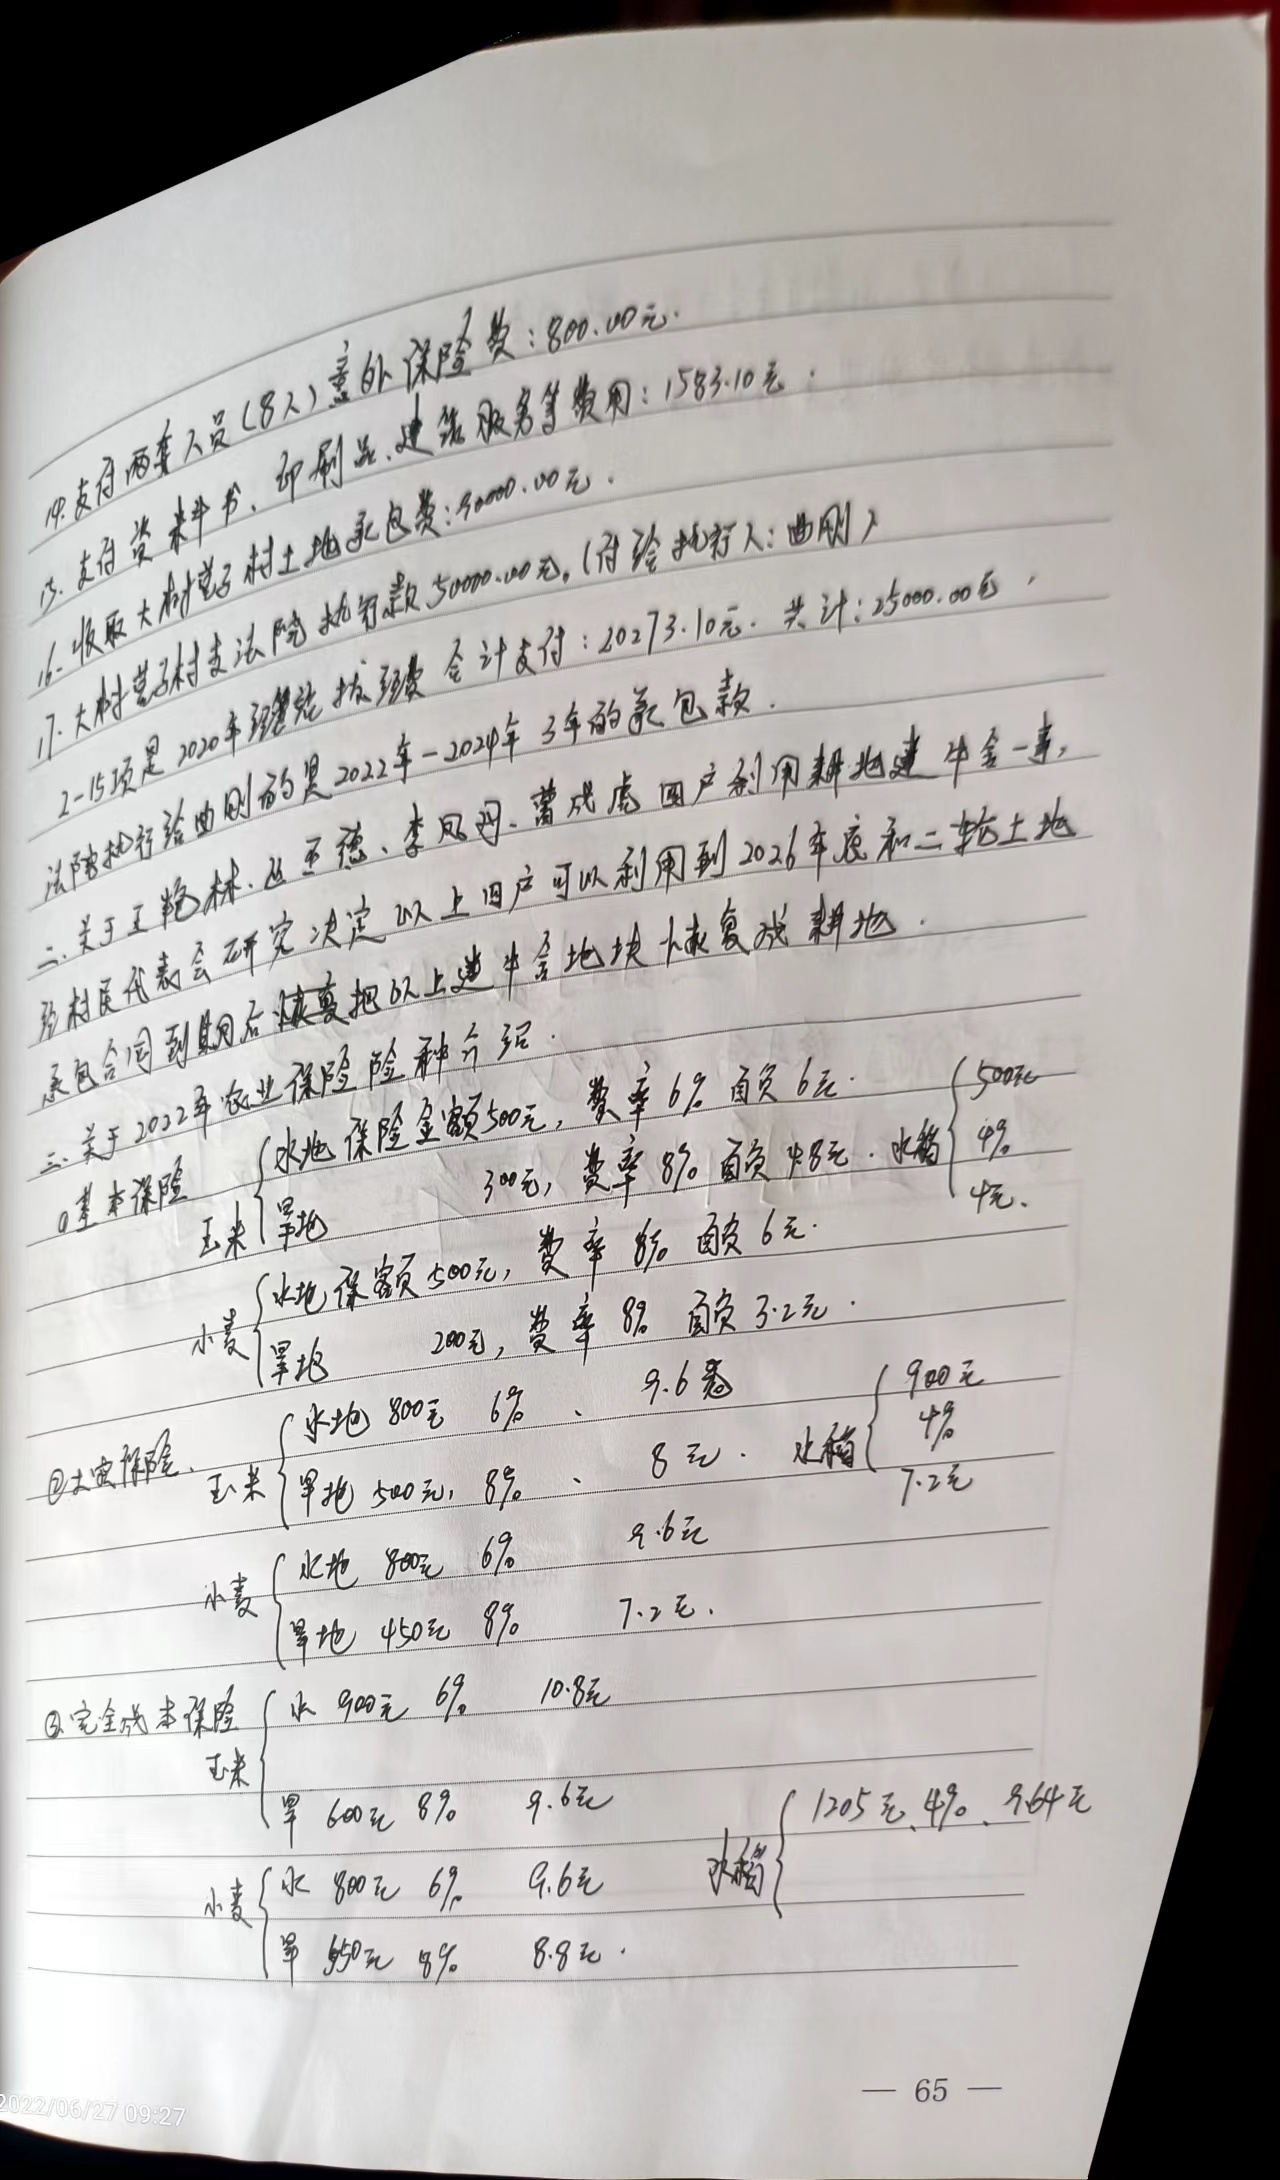 14.支付两委人员(8人)意外保险费:800.00元.
15.支付资料书、印刷品、建筑服务等费用:1583.10元.
16.收取大树营子村土地承包费:50000.00元.
17.大树营子村支法院执行款50000.00元。(付给执行人:曲刚)
2-15项是2020年经管站拨经费 会计支付:20273.10元. 共计:25000.00元.
法院执行给曲刚的是2022年-2024年3年的承包款.
二.关于王艳林、丛玉德、李凤玲、曹成虎四户利用耕地建牛舍一事,
经村民代表会研究决定以上四户可以利用到2026年底和二轮土地
承包合同到期后恢复把以上建牛舍地块恢复成耕地.
三.关于2022年农业保险险种介绍.
①基本保险 玉米 水地 保险金额500元, 费率6% 自负6元.
旱地 300元, 费率8% 自负4.8元. 水稻 500元 4% 4元.
小麦 水地 保额500元, 费率6% 自负6元.
旱地 200元, 费率8% 自负3.2元.
②大灾保险. 玉米 水地 800元 6% 、 9.6元
旱地 500元, 8% 、 8元. 水稻 900元 4% 7.2元
小麦 水地 800元 6% 9.6元
旱地 450元 8% 7.2元.
③完全成本保险 玉米 水 900元 6% 10.8元
旱 600元 8% 9.6元
水稻 1205元、4%、9.64元
小麦 水 800元 6% 9.6元
旱 550元 8% 8.8元.
— 65 —
2022/06/27 09:27